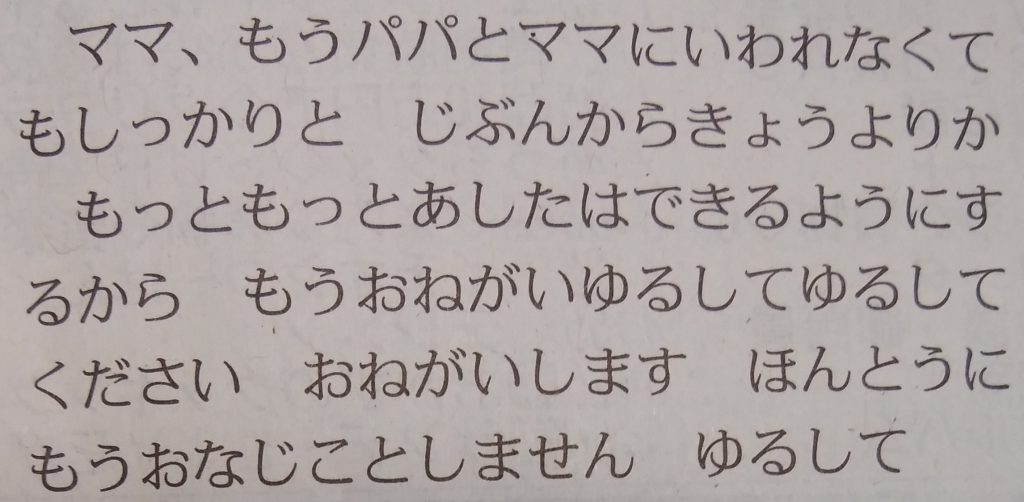 ママ、もうパパとママにいわれなくて
もしっかりと　じぶんからきょうよりか
もっともっとあしたはできるようにす
るから　もうおねがいゆるしてゆるして
ください　おねがいします　ほんとうに
もうおなじことしません　ゆるして